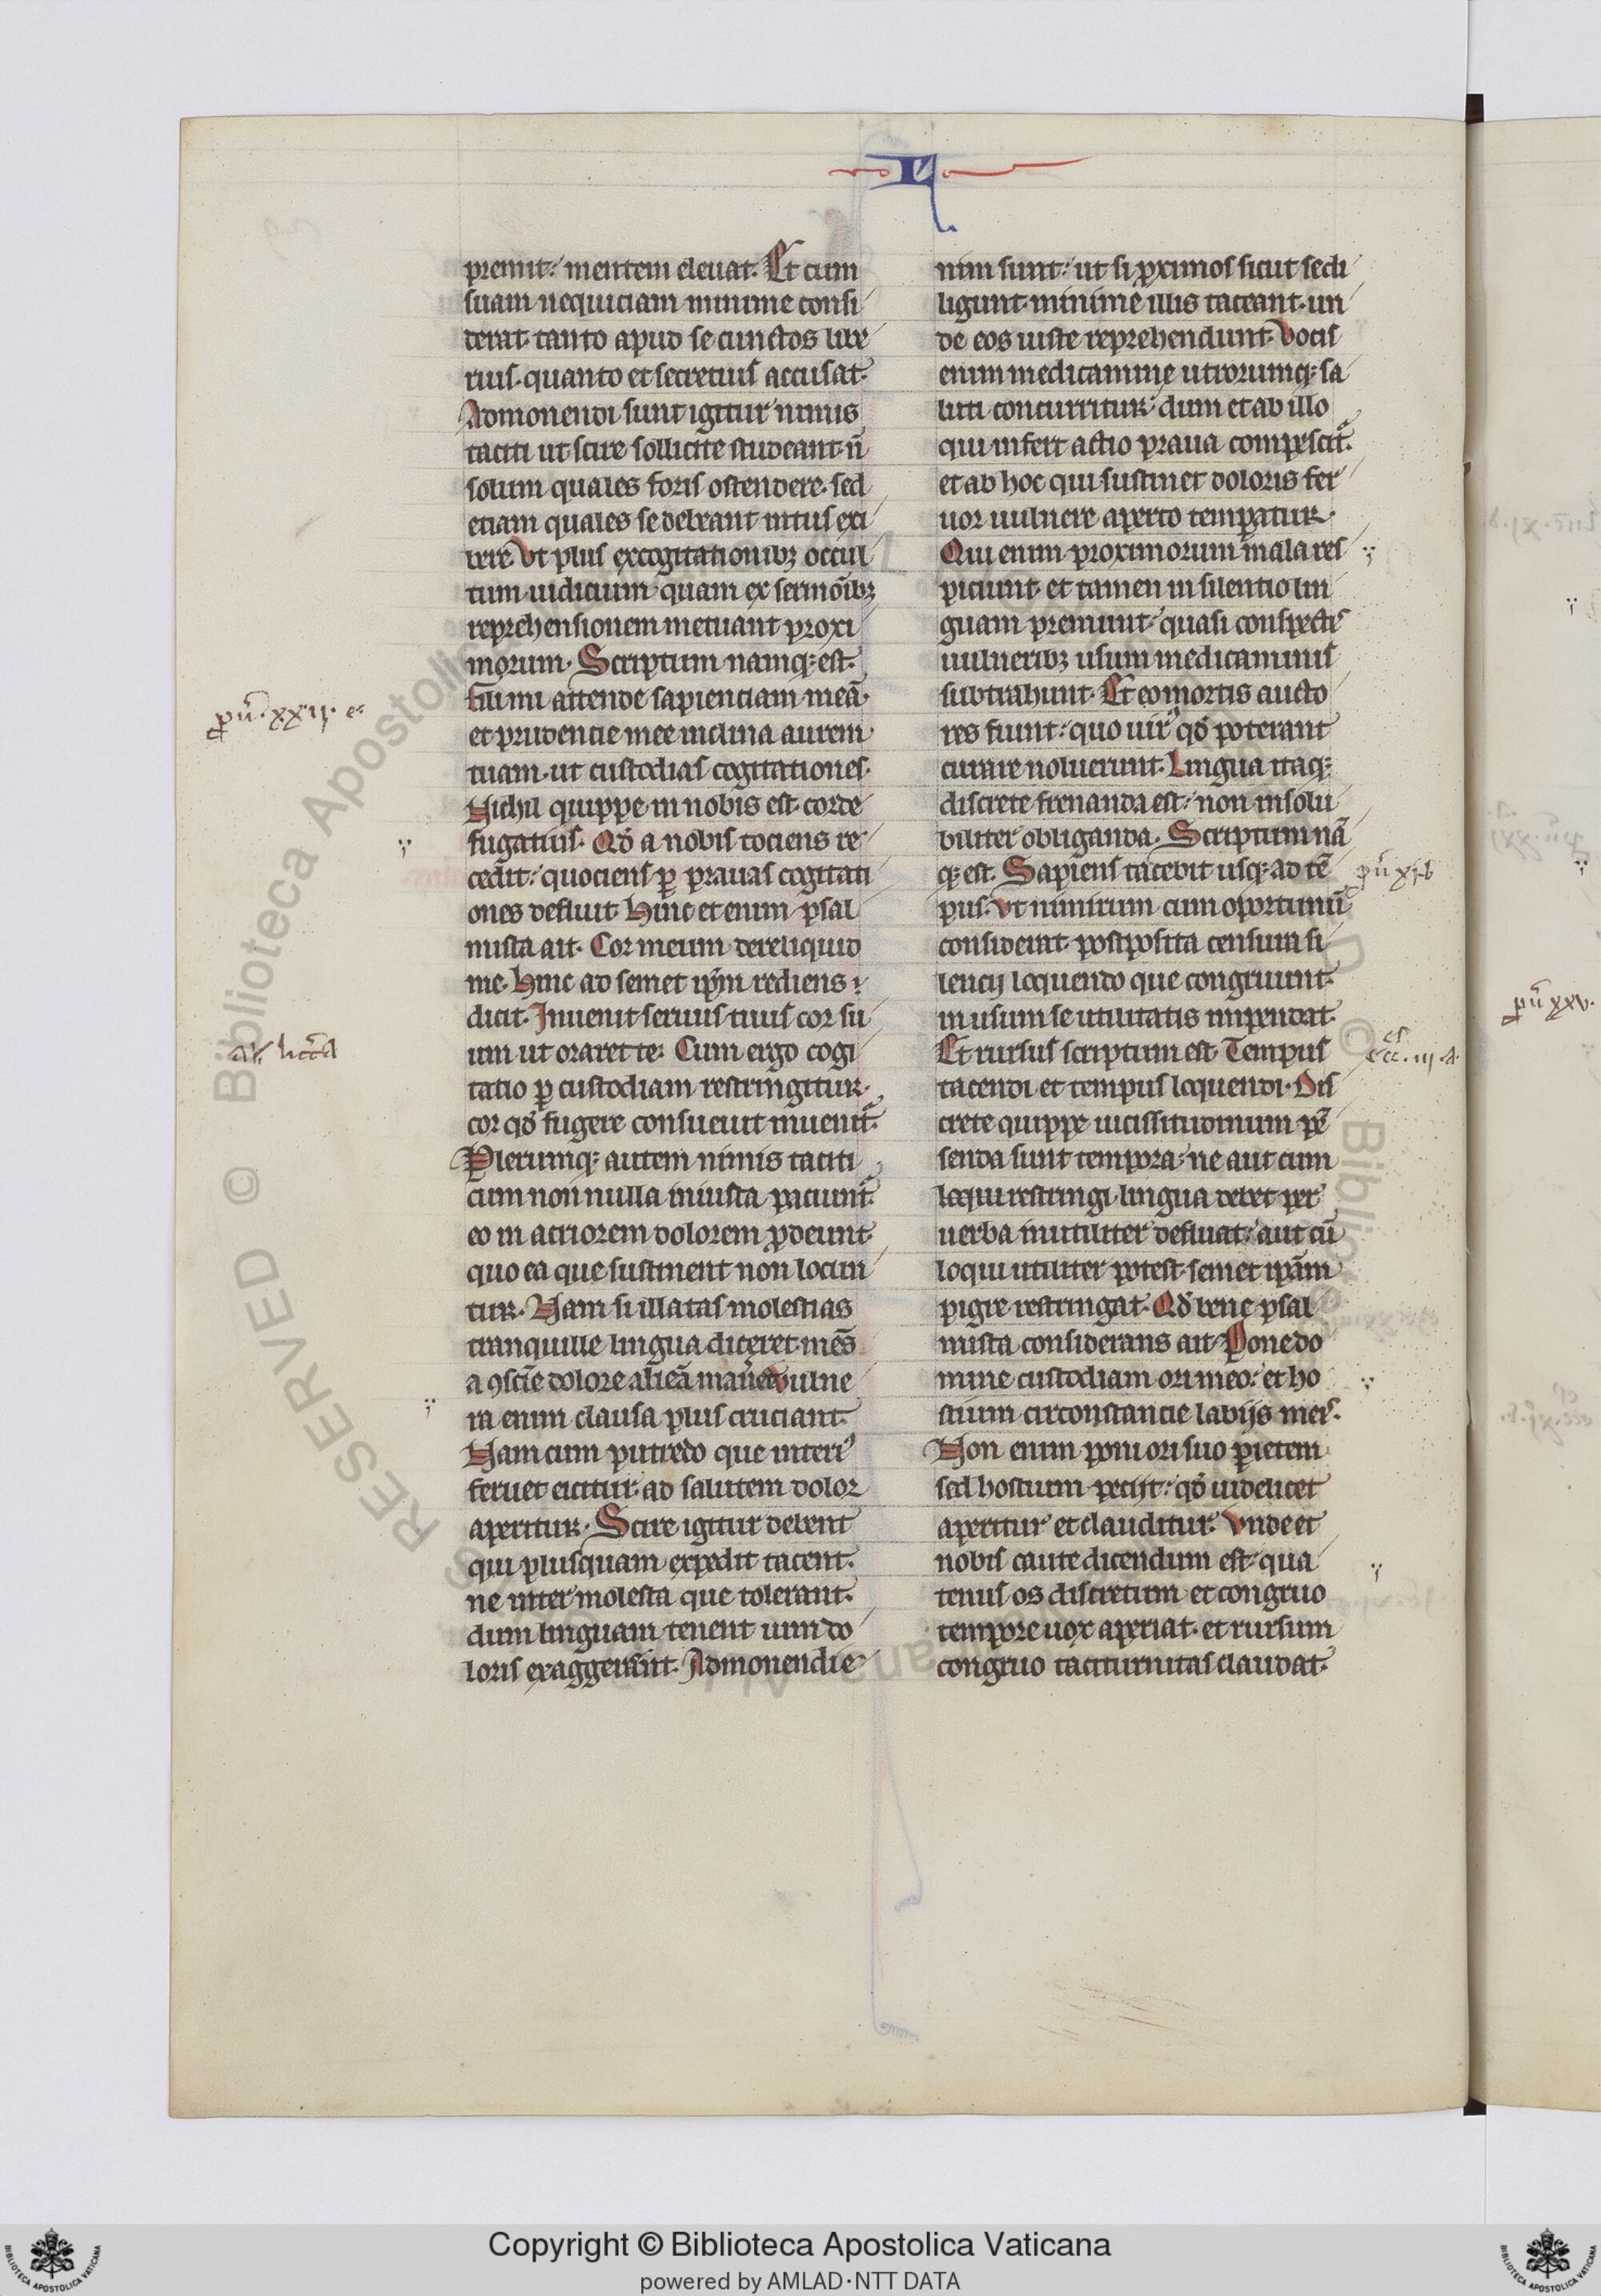 premit: mentem eleuat. Et cum
suam nequiciam minime consi
derat tanto apud se cunctos libe
rius. quanto et secretius accusat.
Admonendi sunt igitur nimis
taciti ut scire sollicite studeant. n̄
solum quales foris ostendere. sed
etiam quales se debeant intus exi
bere. Vt plus ex cogitationibꝫ occul
tum iudicium. quam ex sermōibꝫ
reprehensionem metuant proxi
morum. Scriptum namqꝫ est.
fili mi attende sapienciam meā.
et prudencie mee inclina aurem
tuam. ut custodias cogitationes.
Nichil quippe in nobis est corde
fugatius. Qd̓ a nobis tociens re
cedit: quociens ꝑ prauas cogitati
ones defluit. Hinc et enim psal
mista ait. Cor meum dereliquid
me. Hinc ad semet ip̄m rediens
dicit. Inuenit seruus tuus cor su
um ut oraret te. Cum ergo cogi
tatio ꝑ custodiam restringitur.
cor qd̓ fugere consueuit inuenit᷑.
Plerumqꝫ autem nimis taciti
cum non nulla iniusta paciunt᷑.
eo in acriorem dolorem ꝓdeunt
quo ea que sustinent non locun
tur. Nam si illatas molestias
tranquille lingua diceret. mēs
a ꝯsciē dolore
ra enim clausa plus cruciant.
Nam cum putredo que interiꝰ
feruet eicitur. ad salutem dolor
aperitur. Scire igitur debent
qui plusquam expedit tacent.
ne inter molesta que tolerant.
dum linguam tenent uim do
loris exaggerent. Admonendi e
nim sunt: ut si ꝓximos sicut se di
ligunt. minime illis taceant. un
de eos iuste reprehendunt. Vocis
enim medicamine utrorumqꝫ sa
luti concurritur. dum et ab illo
qui infert actio praua compescit᷑.
et ab hoc qui sustinet doloris fer
uor uulnere aperto temperatur.
Qui enim proximorum mala res
piciunt. et tamen in silentio lin
guam premunt: quasi conspectis
uulneribꝫ usum medicaminis
subtrahunt. Et eo mortis aucto
res fiunt: quo uirꝰ qd̓ poterant
curare noluerunt. Lingua itaqꝫ
discrete frenanda est: non insolu
biliter obliganda. Scriptum nā
qꝫ est. Sapiens tacebit usqꝫ ad tē
pus. Vt nimirum cum oportunū
considerat postposita censura si
lencij loquendo que congruunt.
in usum se utilitatis impendat.
Et rursus scriptum est. Tempus
tacendi et tempus loquendi. Dis
crete quippe uicissitudinum pē
senda sunt tempora: ne aut cum
loqui restringi lingua debet per
uerba inutiliter defluat: aut cū
loqui utiliter potest. semet ip̄am
pigre restringat. Qd̓ bene psal
mista considerans ait. Pone do
mine custodiam ori meo: et ho
stium circonstancie labijs meis.
Non enim poni ori suo parietem
sed hostium petijt: qd̓ uidelicet
aperitur et clauditur. Vnde et
nobis caute dicendum est. qua
tenus os discretum et congruo
tempore uox aperiat. et rursum
congruo taciturnitas claudat.
ꝓū. xxij. e.
ꝓū xx. b
ecc. iij. a.
ꝓū xxv.
RESERVED © Biblioteca Apostolica
© Biblio
Copyright © Biblioteca Apostolica Vaticana
powered by AMLAD·NTT DATA
BIBLIOTECA APOSTOLICA VATICANA
BIBLIOTECA APOSTOLICA VATICANA